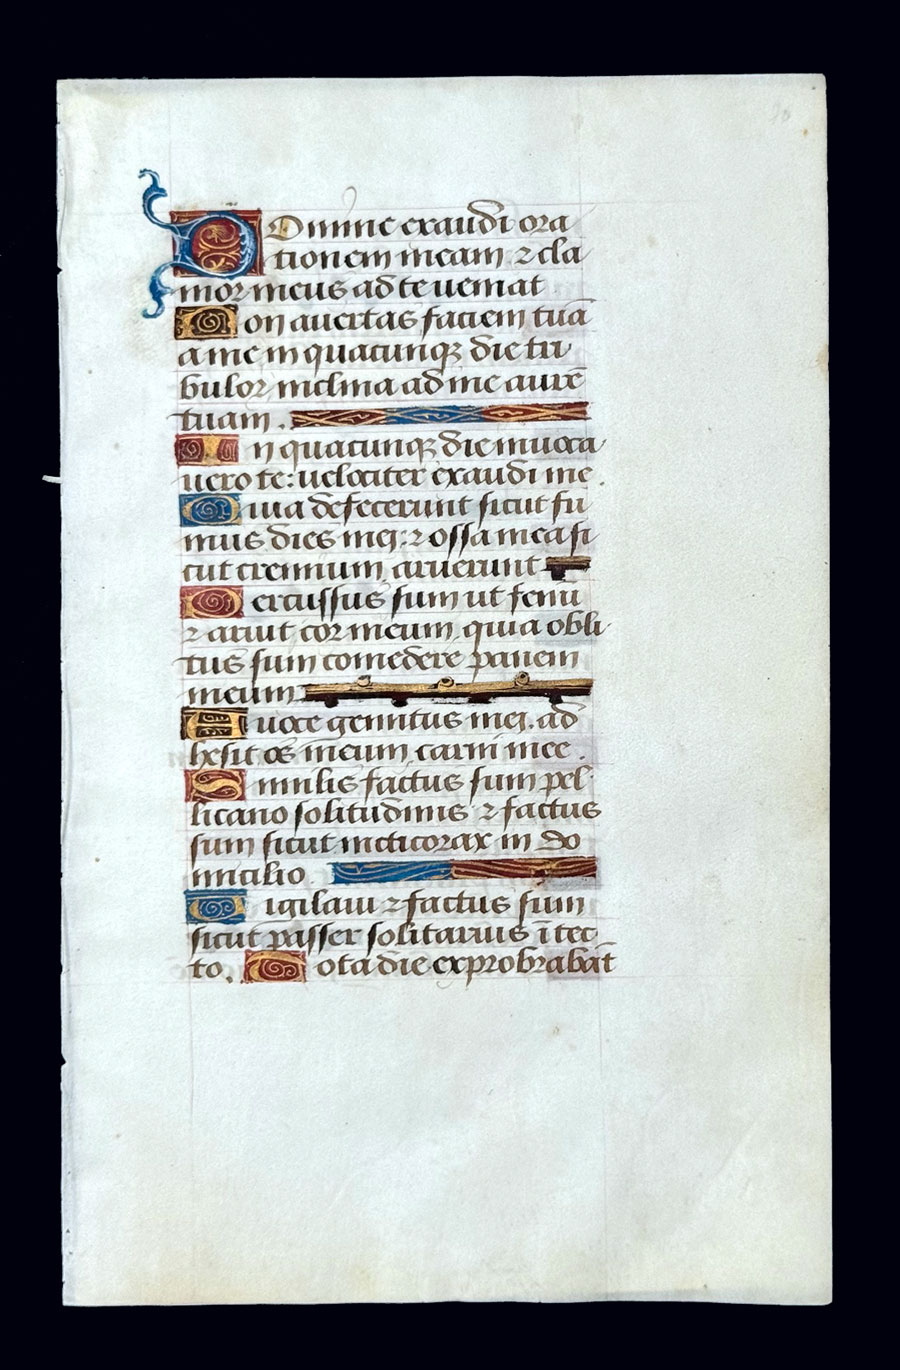 Domine exaudi ora
tionem meam ⁊ cla
mor meus ad te veniat
Non avertas faciem tuã
a me in quacunqꝫ die tri
bulor inclina ad me aurẽ
tuam.
In quacunqꝫ die invoca
vero te: velociter exaudi me.
Quia defecerunt sicut fu
mus dies mei: ⁊ ossa mea si
cut cremium aruerunt
Percussus sum ut fenũ
⁊ aruit cor meum quia obli
tus sum comedere panem
meum
A voce gemitus mei. ad
hesit os meum carni mee.
Similis factus sum pel
licano solitudinis ⁊ factus
sum sicut nicticorax in do
micilio.
Vigilavi ⁊ factus sum
sicut passer solitarius ĩ tec
to. Tota die exprobrabãt